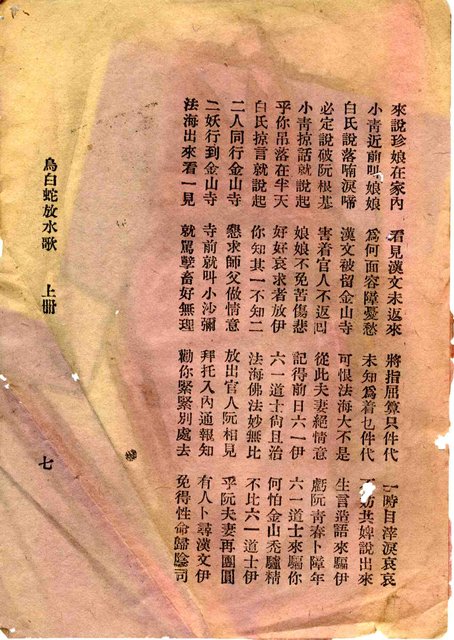 來說珍娘在家內 看見漢文未返來 將指屈算只件代 一時目滓淚哀哀
小靑近前叫娘娘 爲何面容障憂愁 未知爲着乜件代 妨共婢說出來
白氏說落喃淚啼 漢文被留金山寺 可恨法海大不是 生言造語來騙伊
必定說破阮根基 害着官人不返回 從此夫妻絕情意 虧阮靑春卜障年
小靑掠話就說起 娘娘不免苦傷悲 記得前日六一伊 六一道士來驅你
乎你吊落在半天 好好哀求者放伊 六一道士尙且治 何怕金山禿驢精
白氏掠言就說起 你知其一不知二 法海佛法妙無比 不比六一道士伊
二人同行金山寺 懇求師父做情意 放出官人阮相見 乎阮夫妻再團圓
二妖行到金山寺 寺前就叫小沙彌 拜托入內通報知 有人卜尋漢文伊
法海出來看一見 就罵孽畜好無理 勸你緊緊別處去 免得性命歸陰司
烏白蛇放水歌 上册 七